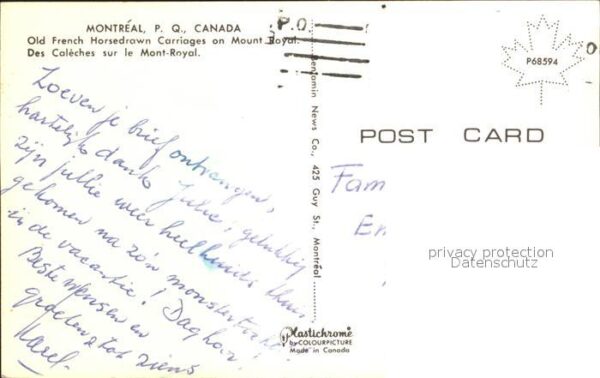 MONTRÉAL, P. Q., CANADA
Old French Horsedrawn Carriages on Mount Royal.
Des Calèches sur le Mont-Royal.
P.Q.
P68594
Zoeven je brief ontvangen,
hartelijk dank Julie, gelukkig
zijn jullie weer heelhuids thuis
gekomen na zo'n monstertocht
in de vacantie! Dag hoor!
Beste wensen en
groeten & tot ziens
Karel.
Benjamin News Co., 425 Guy St., Montréal
POST CARD
Fam
En
privacy protection
Datenschutz
Plastichrome
by COLOURPICTURE
Made in Canada